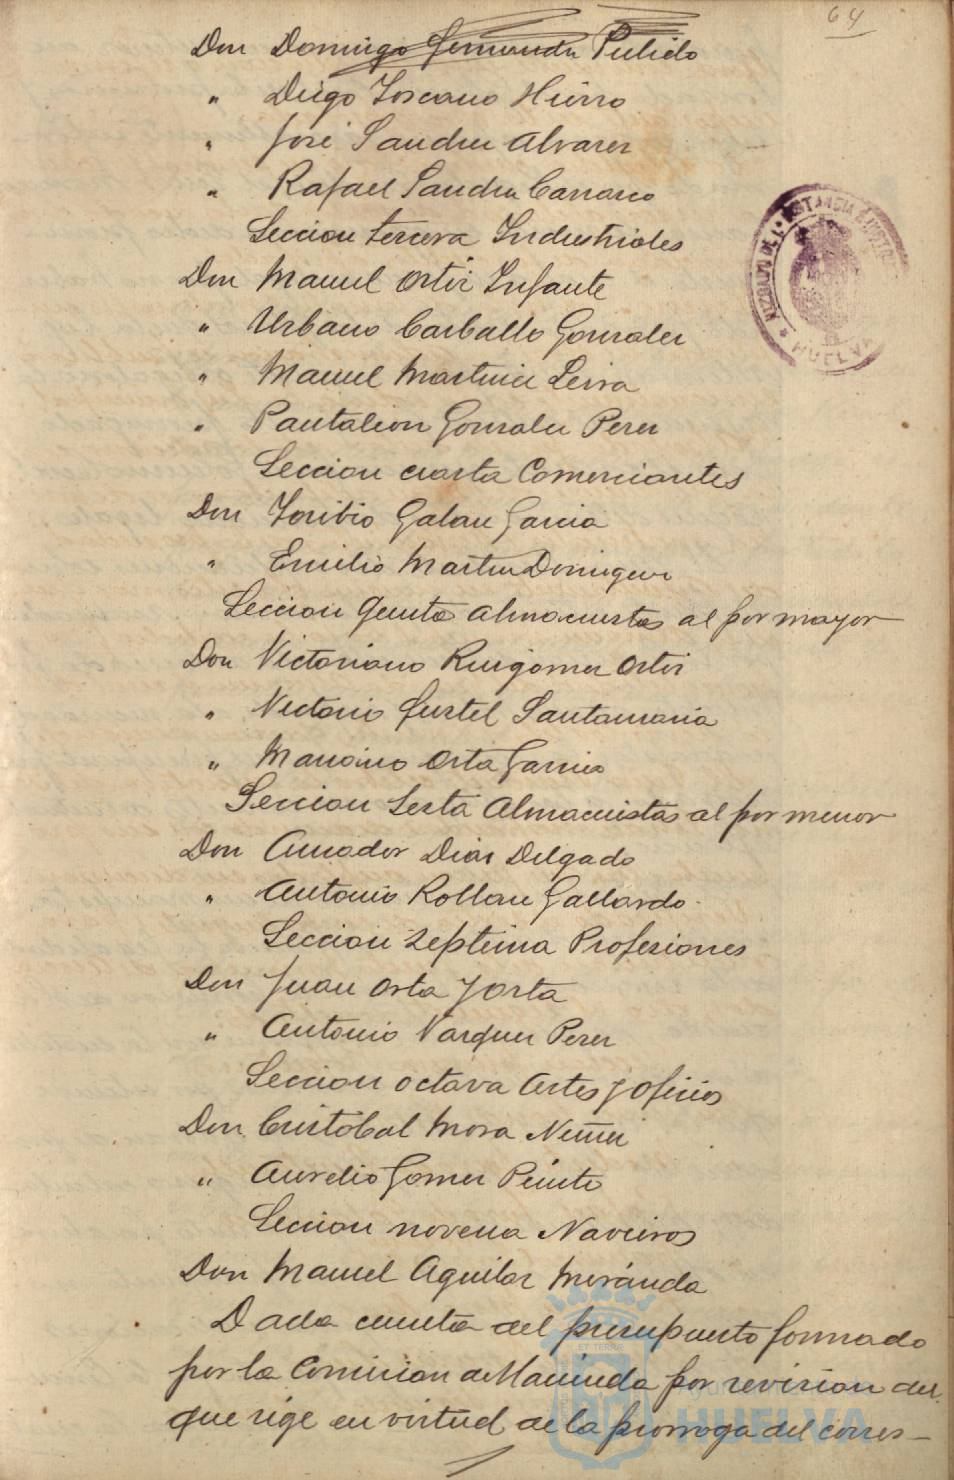 64
Don Domingo Fernandez Pulido
" Diego Toscano Hierro
" José Sandez Alvarez
" Rafael Sandez Carrasco
Seccion tercera Industriales
Don Manuel Ortiz Infante
" Urbano Carballo Gonzalez
" Manuel Martinez Leiva
" Pantalion Gonzalez Perez
Seccion cuarta Comerciantes
Don Toribio Galan Garcia
" Emilio Martin Dominguez
Seccion Quinta Almacenistas al por mayor
Don Victoriano Ruigomez Ortiz
" Victorio Gurtel Santamaria
" Mariano Orta Garcia
Seccion Sexta Almacenistas al por menor
Don Amador Diaz Delgado
" Antonio Rollan Gallardo
Seccion Septima Profesiones
Don Juan Orta y Orta
" Antonio Vazquez Perez
Seccion octava Artes y Oficios
Don Cristóbal Mora Nuñez
" Aurelio Gomez Pinto
Seccion novena Navieros
Don Manuel Aguilar Miránda
Dada cuenta del presupuesto formado
por la Comision de Hacienda por revision del
que rige en virtud de la prorroga del corres-
HUELVA
HUELVA